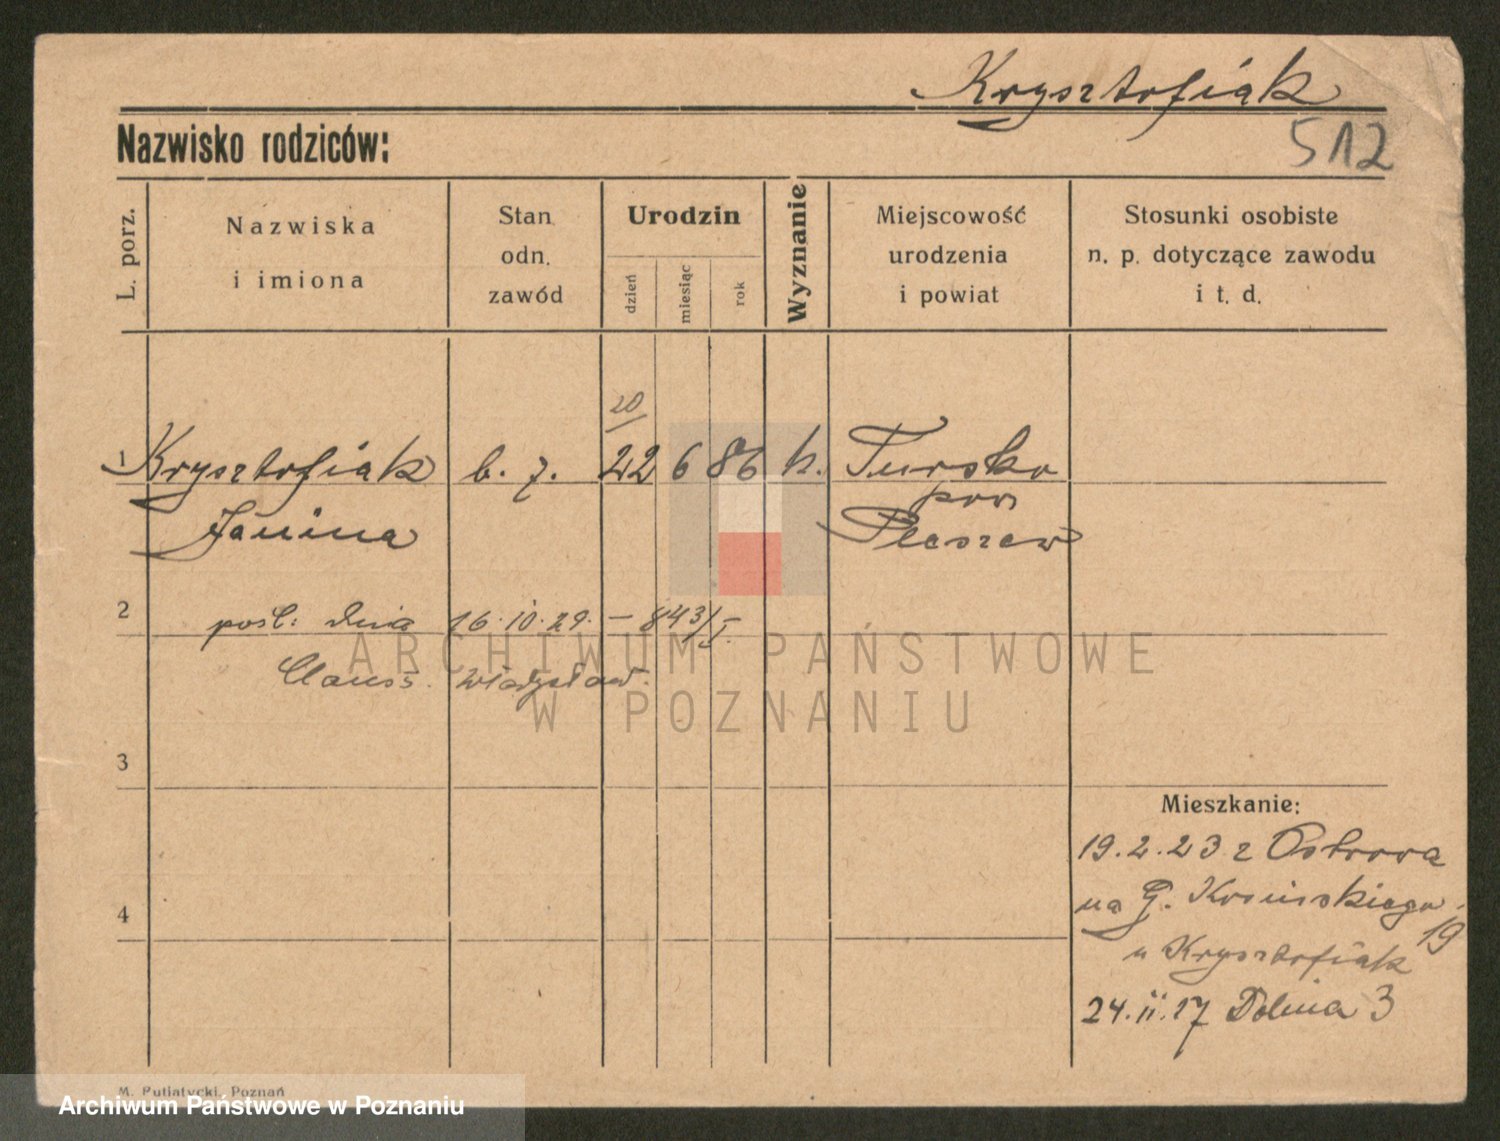 Krysztofiak
512
Nazwisko rodziców:
L. porz.
Nazwiska
i imiona
Stan
odn.
zawód
Urodzin
dzień
miesiąc
rok
Wyznanie
Miejscowość
urodzenia
i powiat
Stosunki osobiste
n. p. dotyczące zawodu
i t. d.
20
1 Krysztofiak b. z. 22 6 86 k. Tursko
Janina
pow
Pleszew
2 pośl: dnia 16.10.29. – 843/I.
Clauss. Władysław.
ARCHIWUM PAŃSTWOWE
W POZNANIU
3
Mieszkanie:
19.2.23 z Ostrowa
na G. Kosińskiego
19
u Krysztofiak
4
24.ii.27 Dolina 3
M. Putiatycki, Poznań
Archiwum Państwowe w Poznaniu